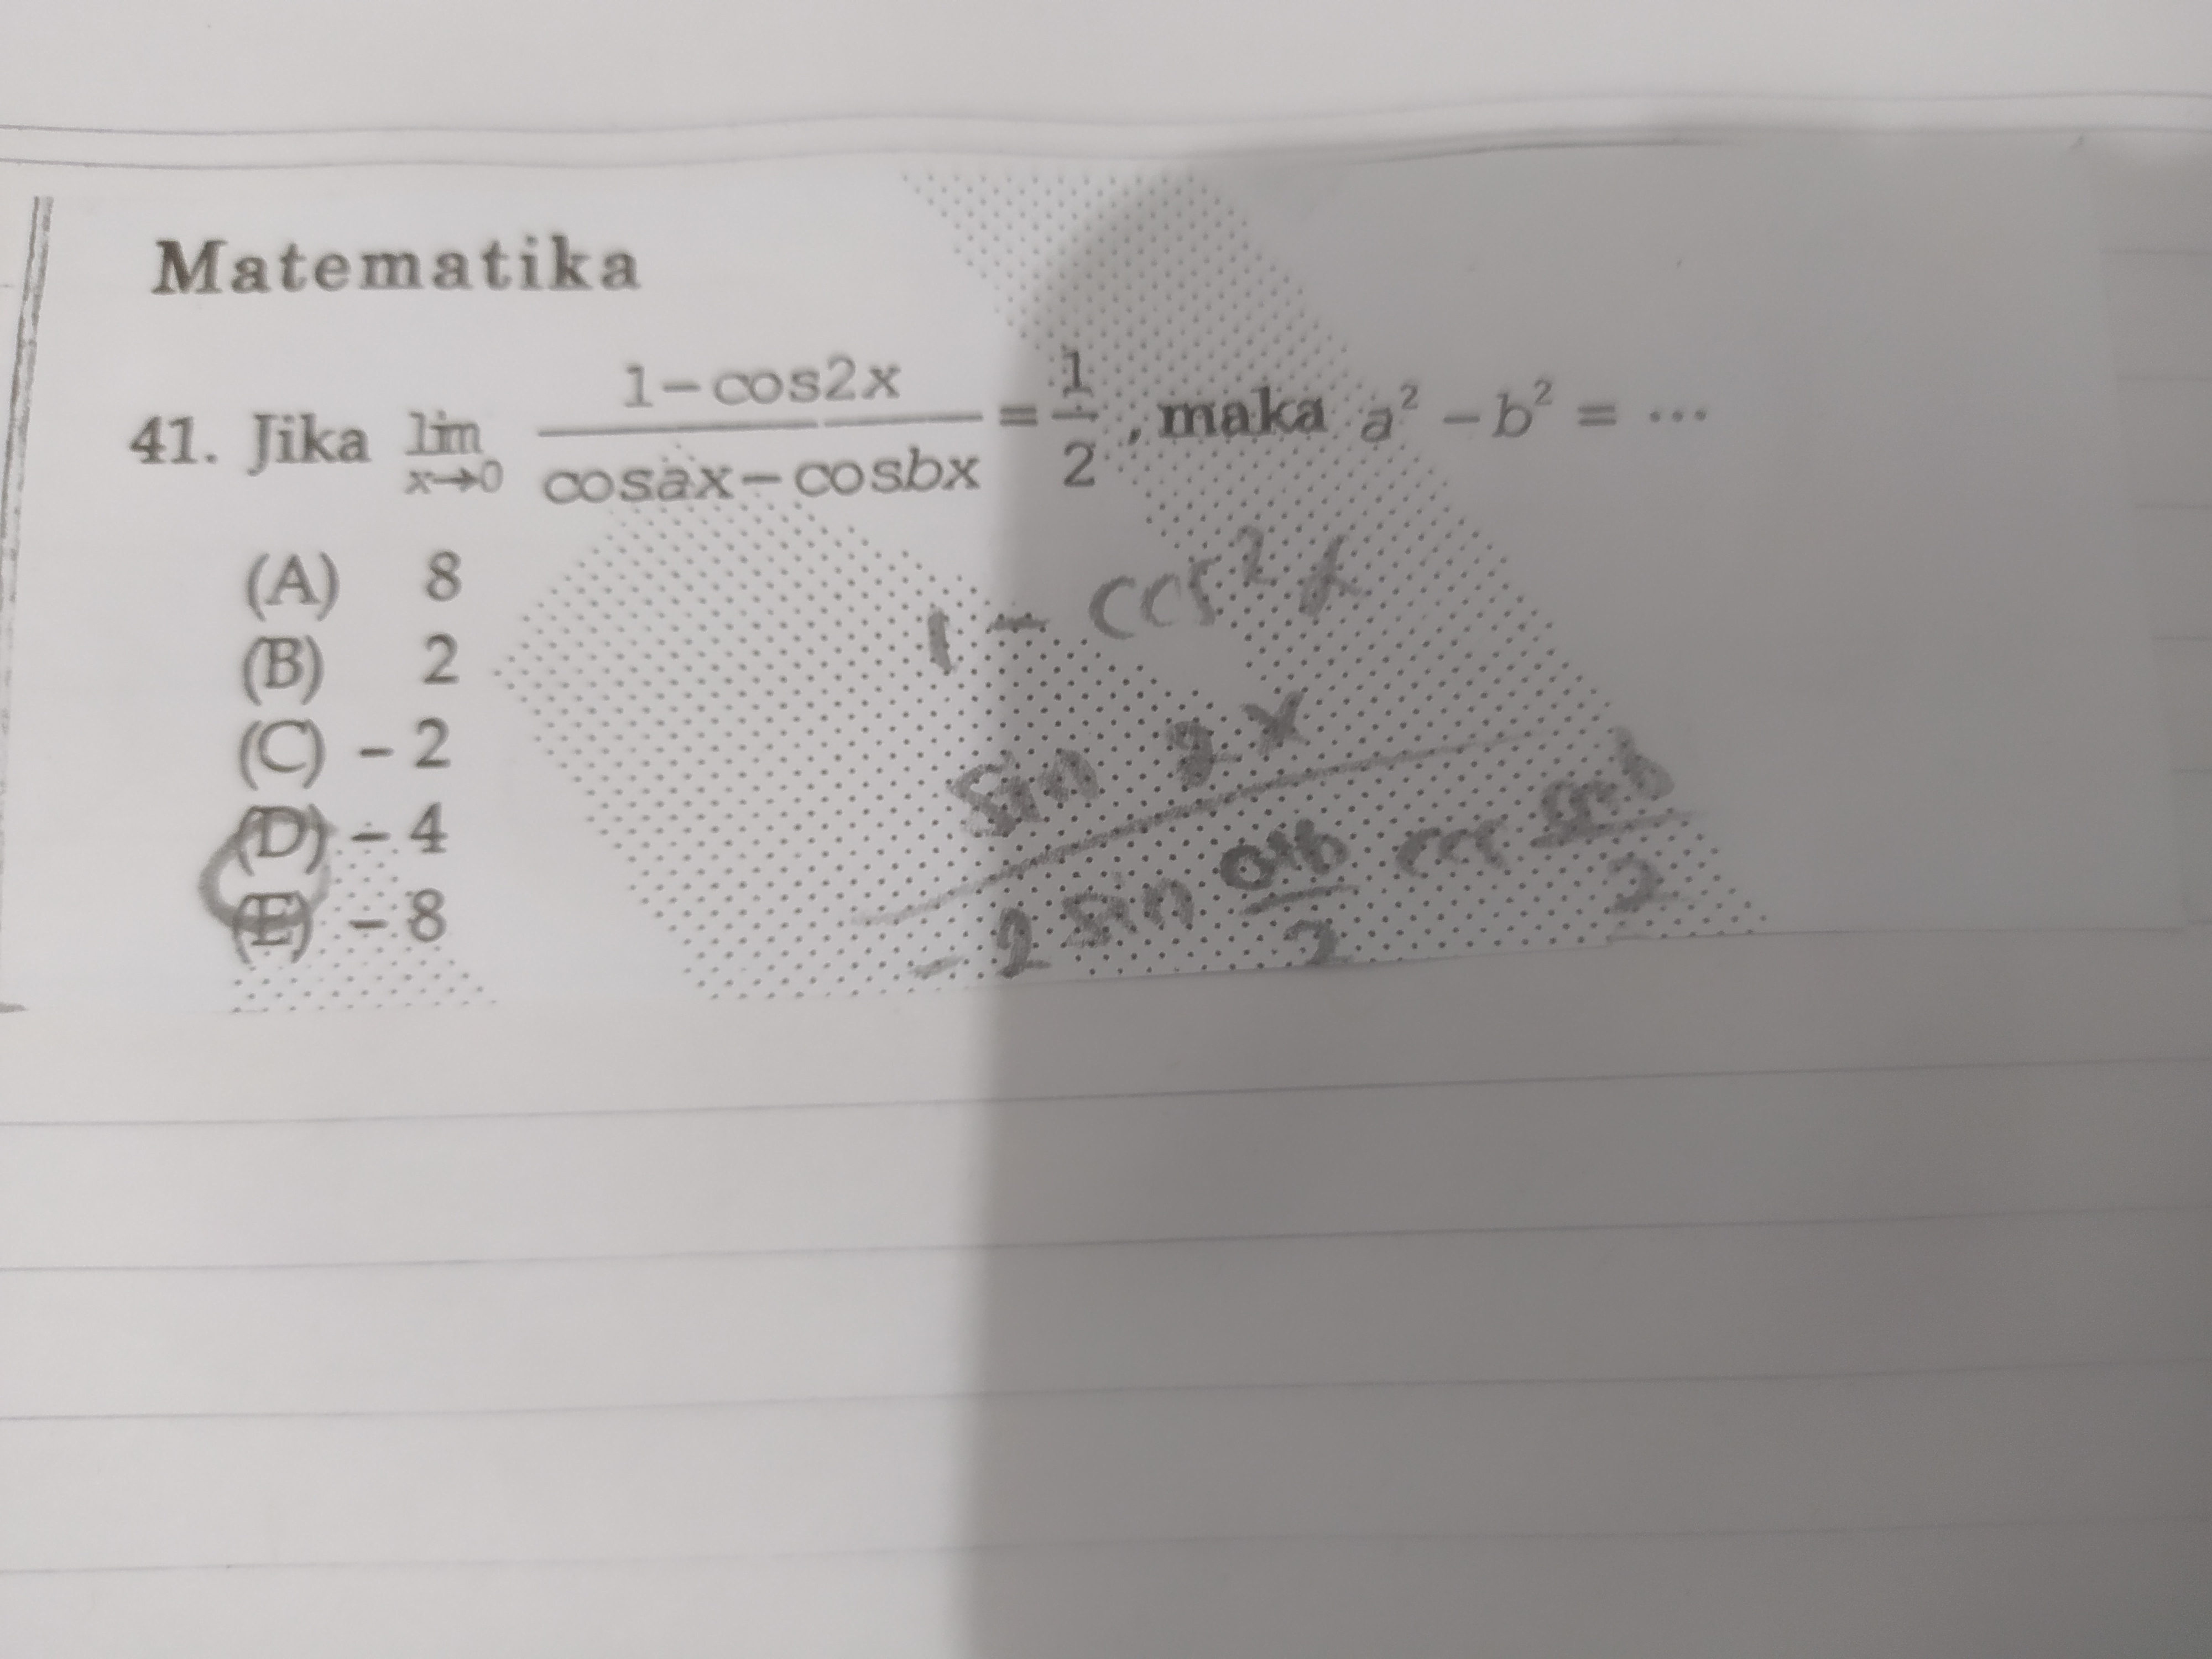 Matematika
41. Jika lim x→0 (1-cos2x)/(cosax-cosbx) = 1/2, maka a² - b² = ...
(A) 8
(B) 2
(C) - 2
(D) - 4
(E) - 8
1 - cos² x
sin 2x
- 2 sin a+b/2 cos /2